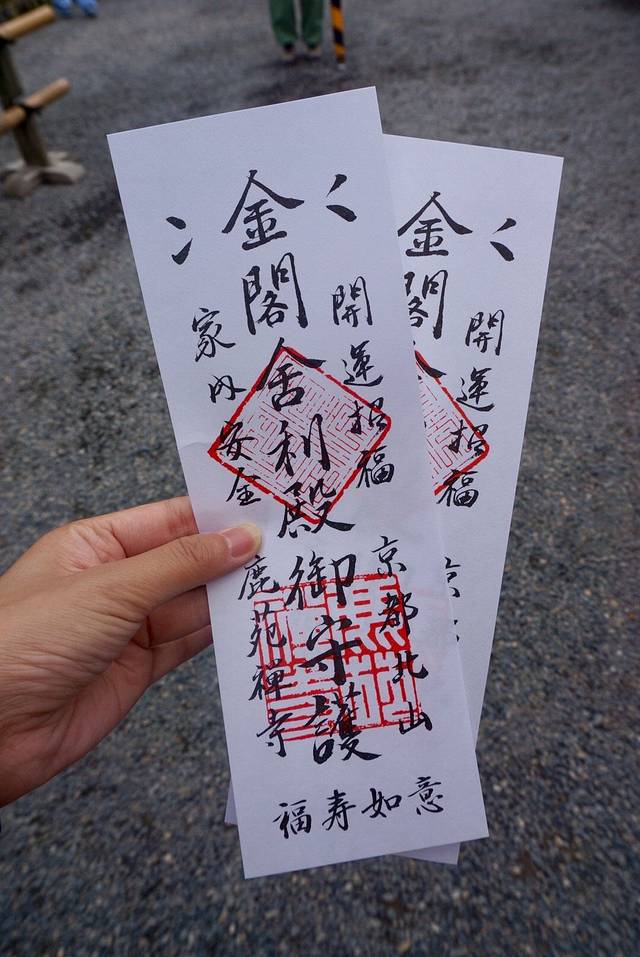 開運招福
京都北山
金閣舎利殿御守護
家内安全
鹿苑禅寺
福寿如意
開運招福
金閣